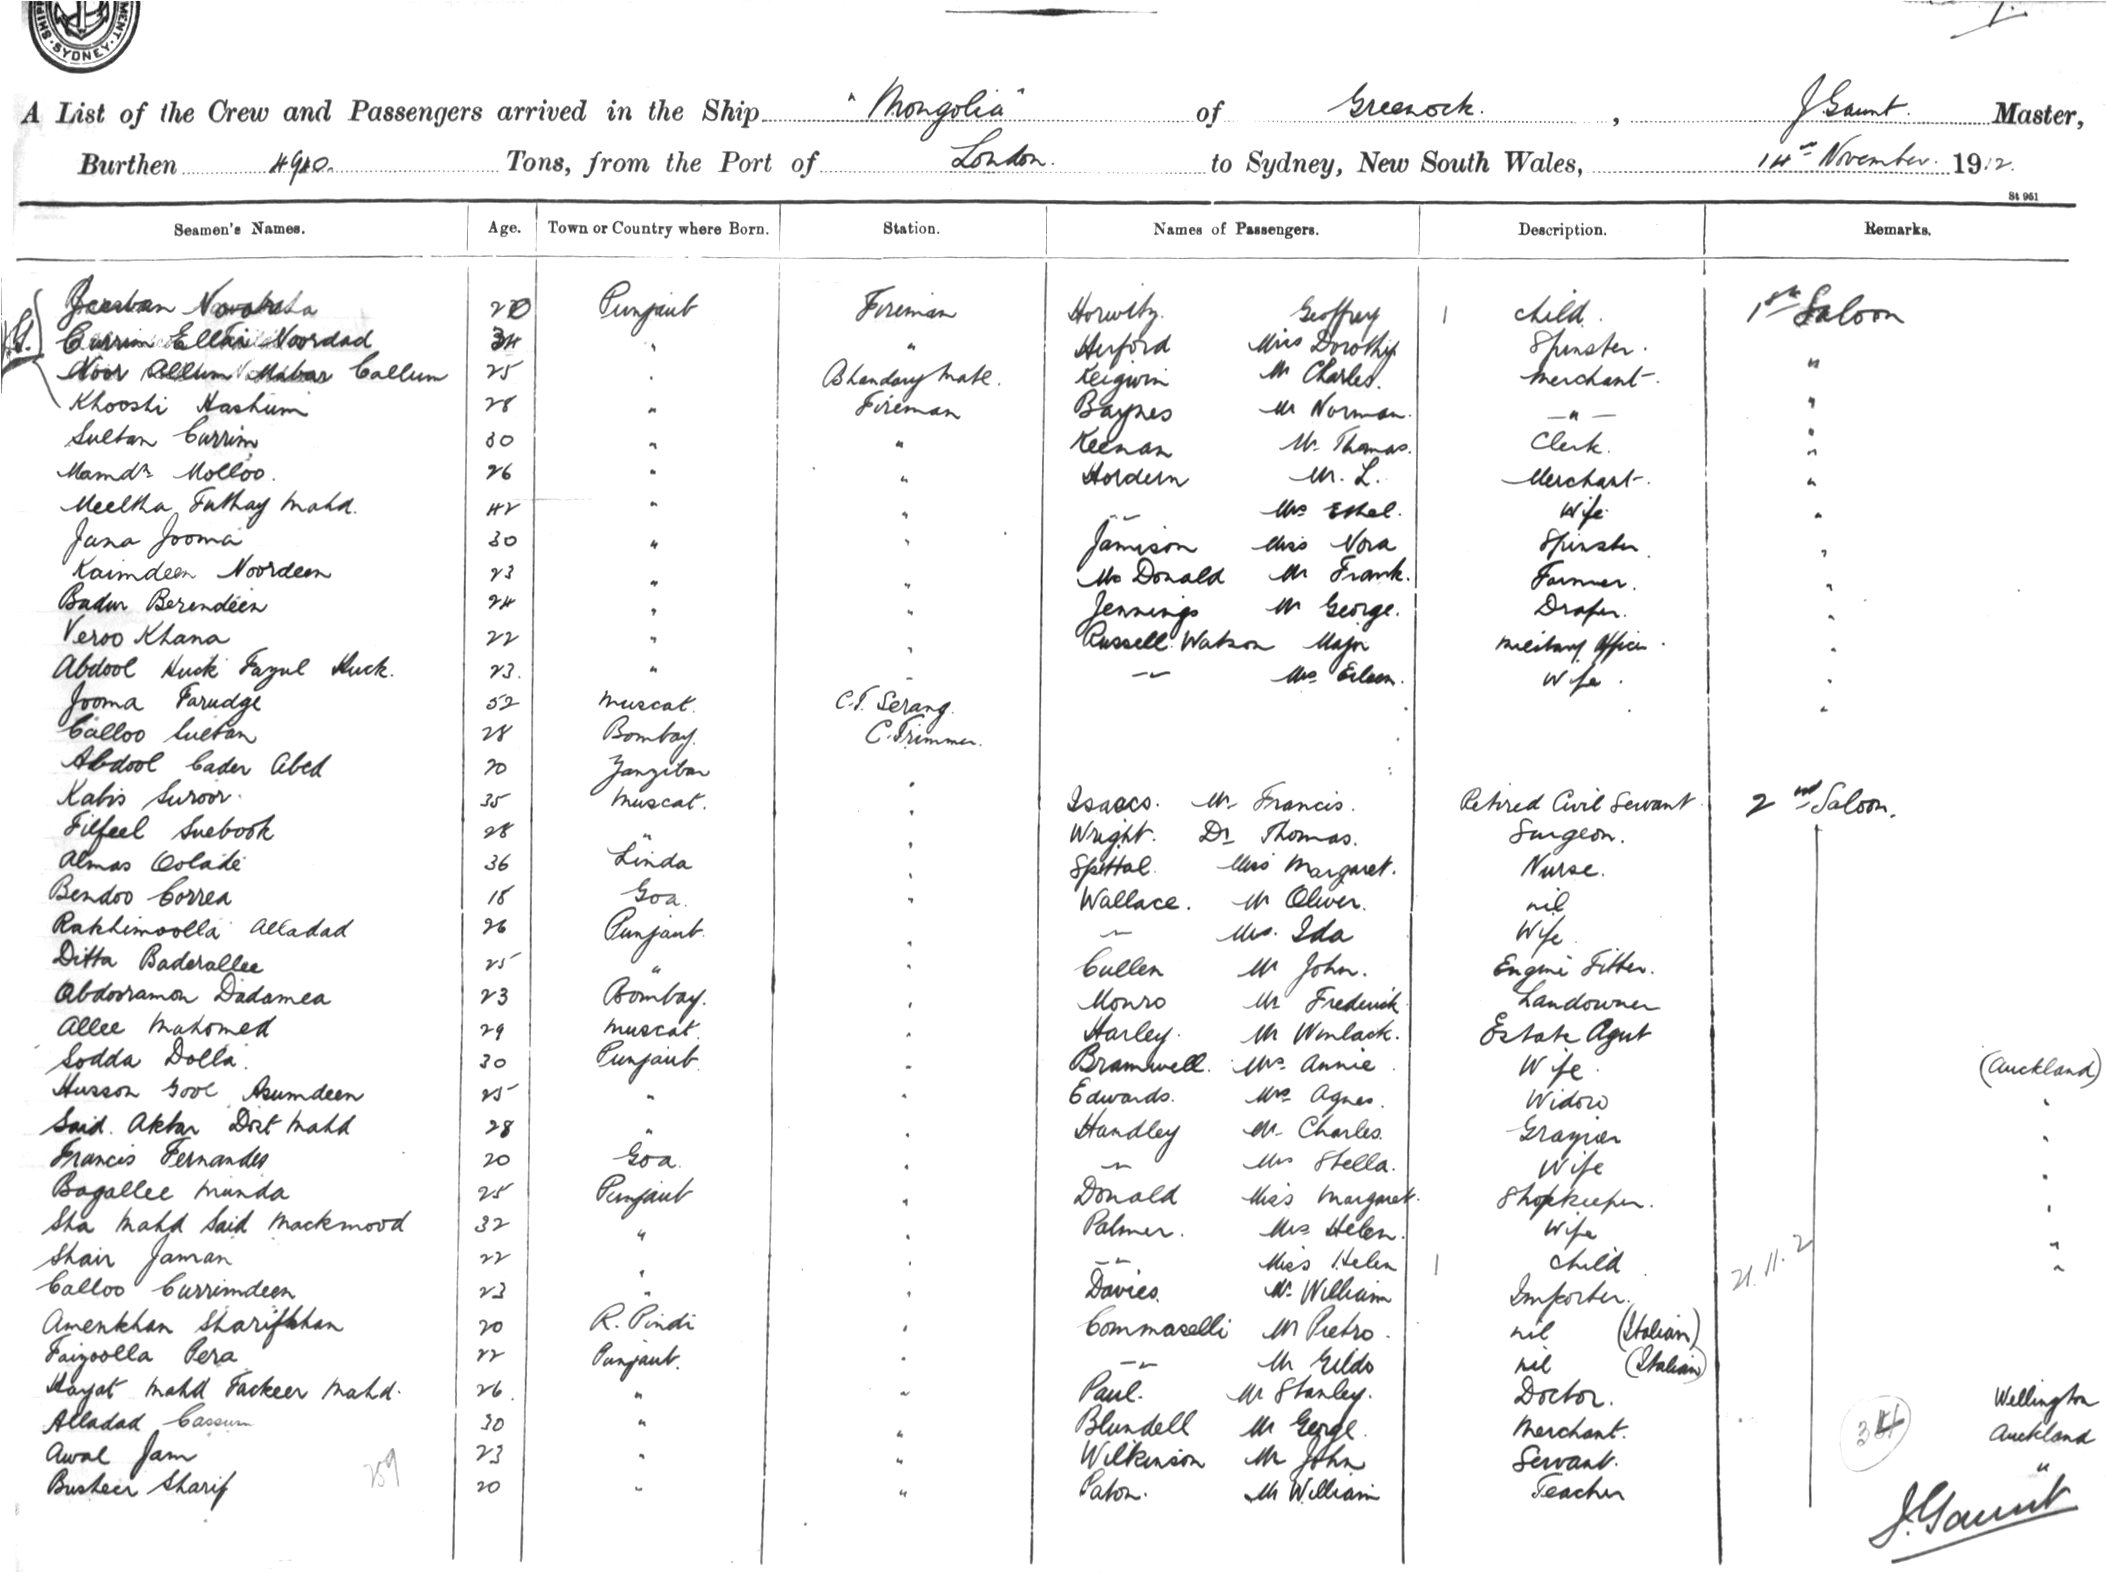 SHIPPING · SYDNEY ·
1.
A List of the Crew and Passengers arrived in the Ship "Mongolia" of Greenock. , J Gaunt. Master,
Burthen 4910. Tons, from the Port of London. to Sydney, New South Wales, 14th November. 1912.
St 951
Seamen's Names. Age. Town or Country where Born. Station. Names of Passengers. Description. Remarks.
20 Punjaub Fireman Horwitz. Geoffrey 1 child. 1st Saloon
Currim Noordad 34 " " Herford Miss Dorothy Spinster.
Noor Allum Callum 25 " Bhandary Mate. Keigwin Mr Charles. Merchant. "
Khooshi Hashim 28 " Fireman Baynes Mr Norman. — " — "
Sultan Currim 30 " " Keenan Mr Thomas. Clerk. "
Mamdn Molloo. 26 " " Hordern Mr. L. Merchant. "
Meeltha Futhay Mahd. 42 " " —"— Mrs Ethel. Wife "
Juna Jooma 30 " " Jamison Miss Nora Spinster. "
Kaimdeen Noordeen 23 " " Mc Donald Mr Frank. Farmer. "
Badur Berendeen 24 " " Jennings Mr George. Draper. "
Veroo Khana 22 " " Russell Watson Major Military Officer. "
Abdool Huck Fazul Huck. 23. " " —"— Mrs Eileen. Wife. "
Jooma Farudge 52 Muscat. C.T. Serang. "
Calloo Sultan 28 Bombay. C. Trimmer.
Abdool Cader Abed 20 Zanzibar "
Kabis Suroor. 35 Muscat. " Isaacs. Mr Francis. Retired Civil Servant 2nd Saloon.
Filfeel Suebook 28 " " Wright. Dr Thomas. Surgeon.
Almas 36 Linda " Spittal. Miss Margaret. Nurse.
Bendoo Correa 18 Goa. " Wallace. Mr Oliver. nil
Rakhimoolla Alladad 26 Punjaub. " —"— Mrs. Ida Wife.
Ditta Baderallee 25 " " Cullen Mr John. Engine Fitter.
Abdooramon Dadamea 23 Bombay. " Monro Mr Frederick Landowner
Allee Mahomed 29 Muscat. " Harley. Mr Wenlock. Estate Agent
Sodda Dolla. 30 Punjaub " Bramwell. Mrs Annie. Wife. (Auckland)
Husson Gool Asumdeen 25 " " Edwards. Mrs Agnes. Widow "
Said. Akbar Dost Mahd 28 " " Handley Mr Charles. Grazier "
Francis Fernandes 20 Goa. " —"— Mrs Stella. Wife "
Bagallee Munda 25 Punjaub " Donald Miss Margaret. Shopkeeper. "
Sha Mahd Said Mackmood 32 " " Palmer. Mrs Helen. Wife "
Shair Jaman 22 " " —"— Miss Helen 1 child "
Calloo Currimdeen 23 " " Davies. Mr William Importer. 21.11.2
Amenkhan Sharifkhan 20 R. Pindi " Commaselli Mr Pietro. nil (Italian)
Faizoolla Pera 22 Punjaub. " —"— Mr Gildo nil (Italian)
Hayat Mahd Fackeer Mahd. 26. " " Paul. Mr Stanley. Doctor. Wellington
Alladad Cassum 30 " " Blundell Mr George. Merchant. Auckland
Awal Jam 23 " " Wilkinson Mr John Servant. "
Busheer Sharif 20 " " Paton. Mr William Teacher
J. Gaunt